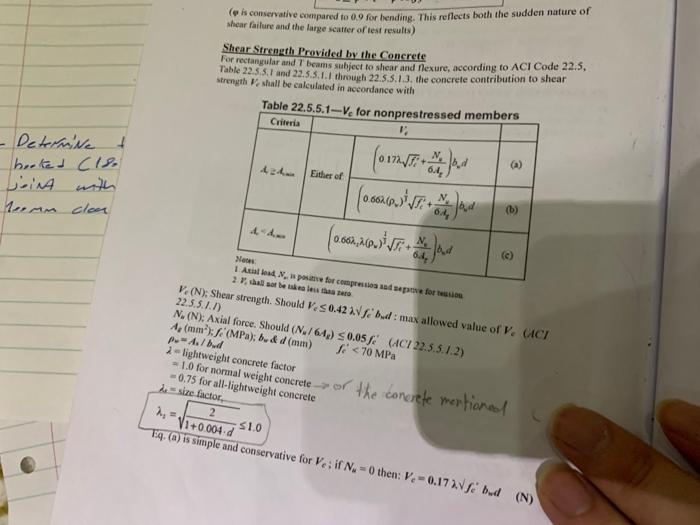 (φ is conservative compared to 0.9 for bending. This reflects both the sudden nature of
shear failure and the large scatter of test results)
Shear Strength Provided by the Concrete
For rectangular and T beams subject to shear and flexure, according to ACI Code 22.5,
Table 22.5.5.1 and 22.5.5.1.1 through 22.5.5.1.3. the concrete contribution to shear
strength Vc shall be calculated in accordance with
Table 22.5.5.1—Vc for nonprestressed members
Criteria Vc
Av ≥ Av,min Either of
(0.17λ√fc' + Nu/6Ag)bwd (a)
(0.66λ(ρw)^1/3 √fc' + Nu/6Ag)bwd (b)
Av < Av,min (0.66λsλ(ρw)^1/3 √fc' + Nu/6Ag)bwd (c)
Notes:
1 Axial load, Nu, is positive for compression and negative for tension
2 Vc shall not be taken less than zero.
Vc (N); Shear strength. Should Vc ≤ 0.42 λ√fc' bwd : max allowed value of Vc (ACI
22.5.5.1.1)
Nu (N); Axial force. Should (Nu / 6Ag) ≤ 0.05fc' (ACI 22.5.5.1.2)
Ag (mm²); fc' (MPa); bw & d (mm) fc' < 70 MPa
ρw = As / bwd
λ = lightweight concrete factor
= 1.0 for normal weight concrete → or the concrete mentioned
= 0.75 for all-lightweight concrete
λs = size factor,
λs = √(2/(1+0.004·d)) ≤ 1.0
Eq. (a) is simple and conservative for Vc; if Nu = 0 then: Vc = 0.17 λ√fc' bwd (N)
- Determine
hooked
joint with
clear